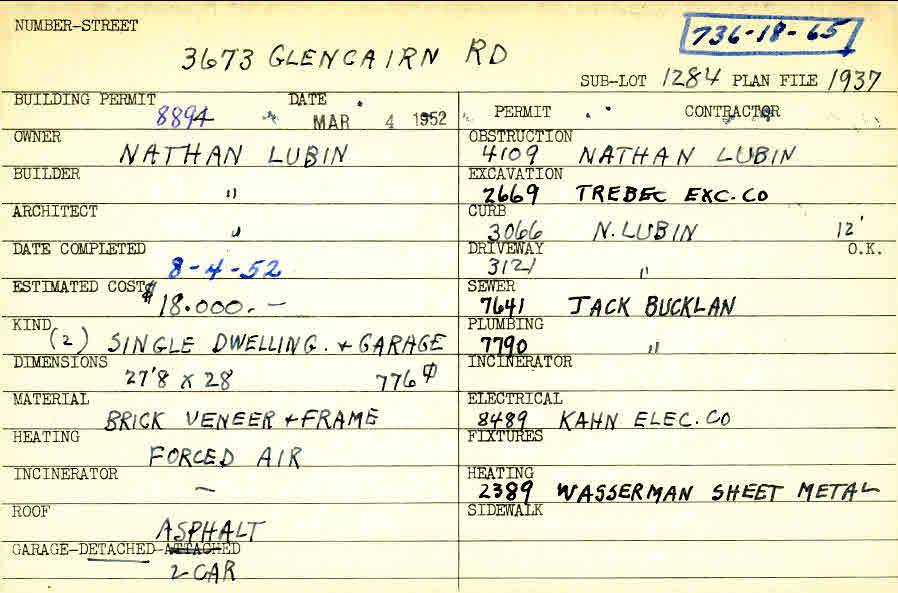 NUMBER-STREET
3673 GLENCAIRN RD
736-18-65
SUB-LOT 1284 PLAN FILE 1937
BUILDING PERMIT DATE
8894 MAR 4 1952
OWNER
NATHAN LUBIN
BUILDER
"
ARCHITECT
"
DATE COMPLETED
8-4-52
ESTIMATED COST $
18.000.-
KIND
(2) SINGLE DWELLING. + GARAGE
DIMENSIONS
27'8 x 28 776
MATERIAL
BRICK VENEER + FRAME
HEATING
FORCED AIR
INCINERATOR
-
ROOF
ASPHALT
GARAGE-DETACHED-ATTACHED
2 CAR
PERMIT CONTRACTOR
OBSTRUCTION
4109 NATHAN LUBIN
EXCAVATION
2669 TREBEC EXC. CO
CURB
3066 N. LUBIN 12'
DRIVEWAY O.K.
3121 "
SEWER
7641 JACK BUCKLAN
PLUMBING
7790 "
INCINERATOR
ELECTRICAL
8489 KAHN ELEC. CO
FIXTURES
HEATING
2389 WASSERMAN SHEET METAL
SIDEWALK